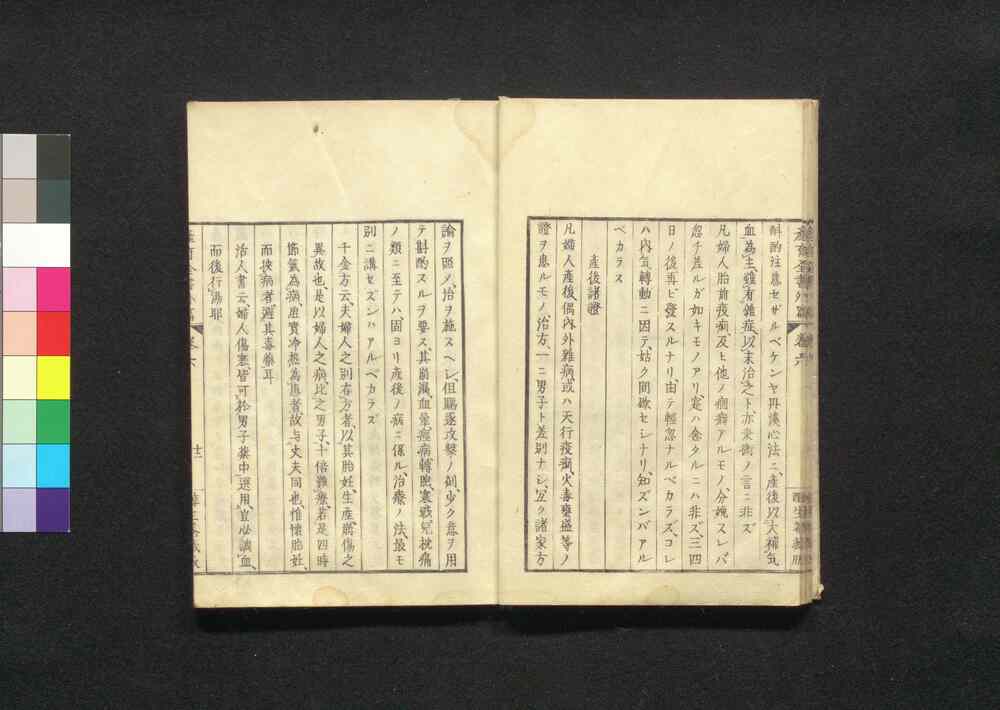 斟酌注意セザルベケンヤ丹溪心法ニ、産後以大補気
血為主、雖有雜症、以末治之ト、亦大術ノ言ニ非ズ
凡婦人胎前疫痢、及ヒ他ノ痼癖アルモノ、分娩スレバ
忽チ差ルガ如キモノアリ、寔ハ全タルニハ非ズ、三四
日ノ後再ビ發スルナリ、由テ輕忽ナルベカラズ、コレ
ハ内気轉動ニ因テ、姑ク間歇セシナリ、知ズンバアル
ベカラス
産後諸證
凡婦人産後、偶内外雜病、或ハ天行疫痢、火毒癰盛等ノ
證ヲ患ルモノ、治方、一ニ男子ト差別ナシ、宜ク諸家方
論ヲ照ノ、治ヲ施スヘシ、但驅逐攻撃ノ劑、少ク意ヲ用
テ斟酌スルヲ要ス、其崩漏、血暈、痙病、轉胞、寒戰、兒枕痛
ノ類ニ至テハ、固ヨリ産後ノ病ニ係ル、治療ノ法、最モ
別ニ講セズンハアルベカラズ
千金方云、夫婦人之別有方者、以其胎妊、生産、崩傷之
異故也、是以婦人之病、比之男子、十倍難療、若是四時
節氣為病、虚實冷熱為患者、故与丈夫同也、惟懷胎妊、
而挾病者、避其毒藥耳
活人書云、婦人傷寒、皆可於男子藥中選用、豈必識血、
而後行湯耶